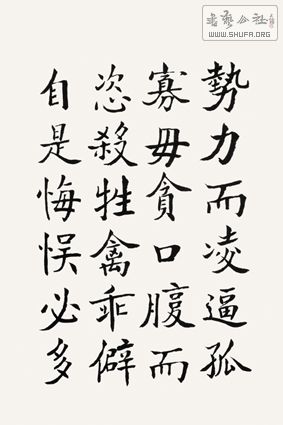 書藝公社
WWW.SHUFA.ORG
勢力而凌逼孤
寡毋貪口腹而
恣殺牲禽乖僻
自是悔悮必多